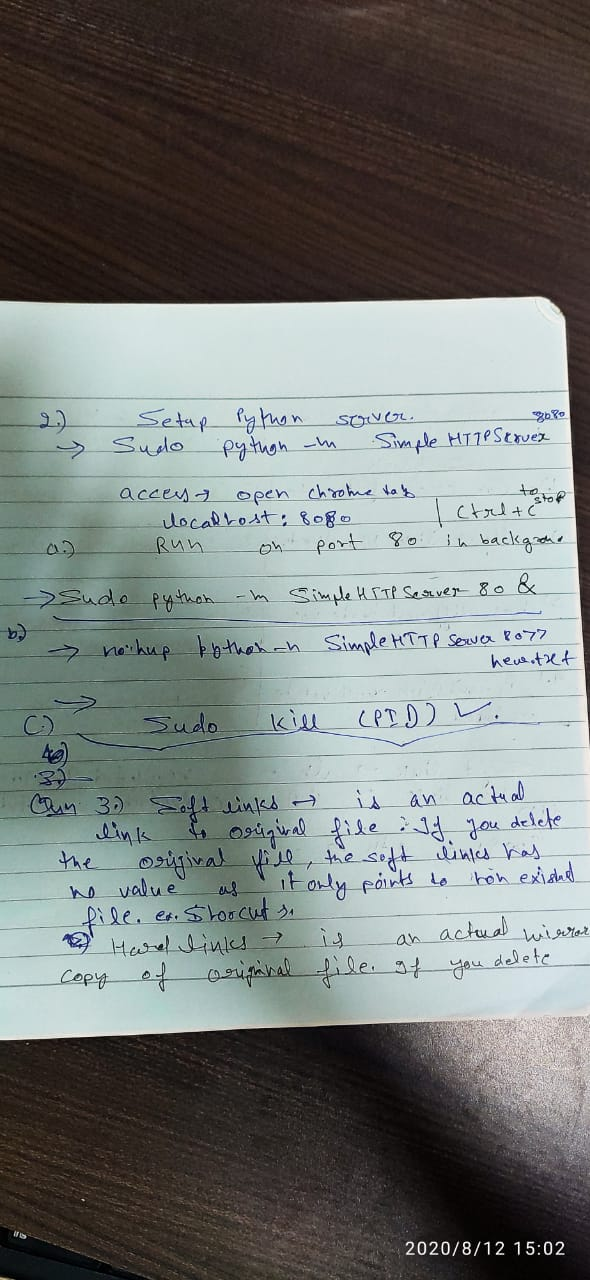 2.) Setup Python server.
→ Sudo python -m SimpleHTTPServer 8080
access → open chrome tab
localhost: 8080 | Ctrl+C to stop
a.) Run on port 80 in
→ Sudo python -m SimpleHTTPServer 80 &
b.)
→ nohup python -m SimpleHTTPServer 8077
→
C.) Sudo kill (PID) ✓.
3.) —
Qun 3.) Soft links → is an actual
link to original file. If you delete
the original file, the soft links has
no value as it only points to non existed
file. ex.
Hard links → is an actual mirror
copy of original file. If you delete
2020/8/12 15:02